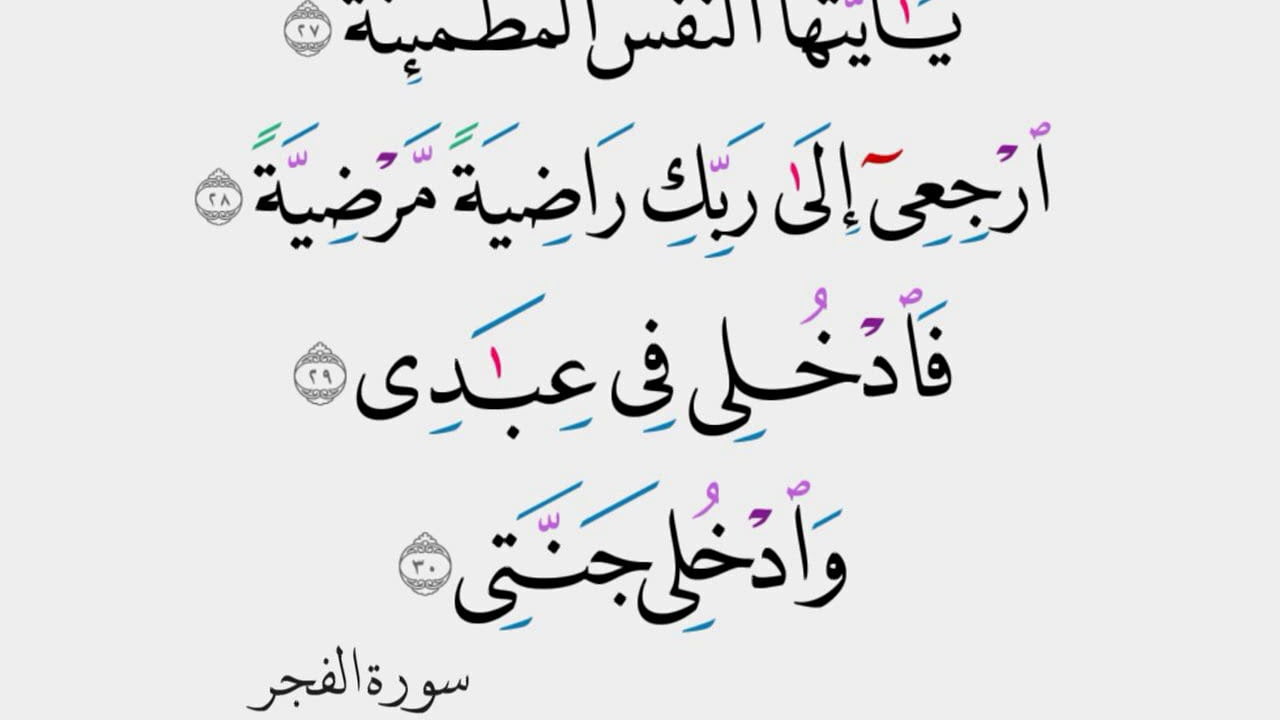 يَـٰٓأَيَّتُهَا ٱلنَّفْسُ ٱلْمُطْمَئِنَّةُ ٢٧
ٱرْجِعِىٓ إِلَىٰ رَبِّكِ رَاضِيَةً مَّرْضِيَّةً ٢٨
فَٱدْخُلِى فِى عِبَـٰدِى ٢٩
وَٱدْخُلِى جَنَّتِى ٣٠
سورة الفجر